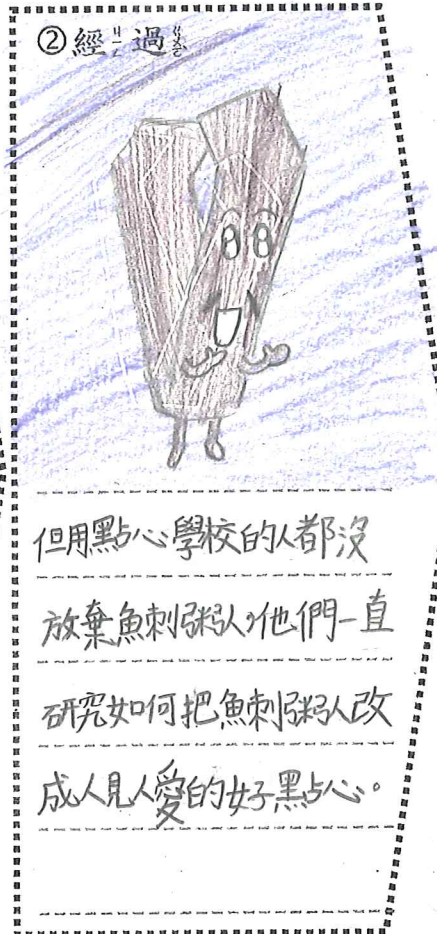 ②經ㄐㄧㄥ過ㄍㄨㄛˋ
但用點心學校的人都沒
放棄魚刺粥人,他們一直
研究如何把魚刺粥人改
成人見人愛的好點心。